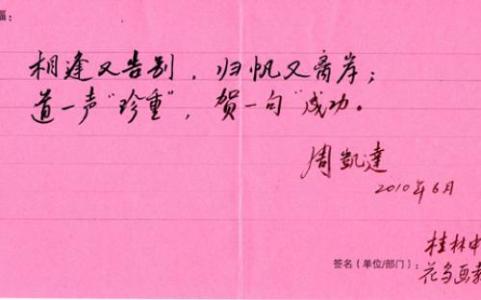 福：
相逢又告别，归帆又离岸；
道一声“珍重”，贺一句“成功。
周凱達
2010年6月
桂林中
签名（单位/部门）：花鸟画